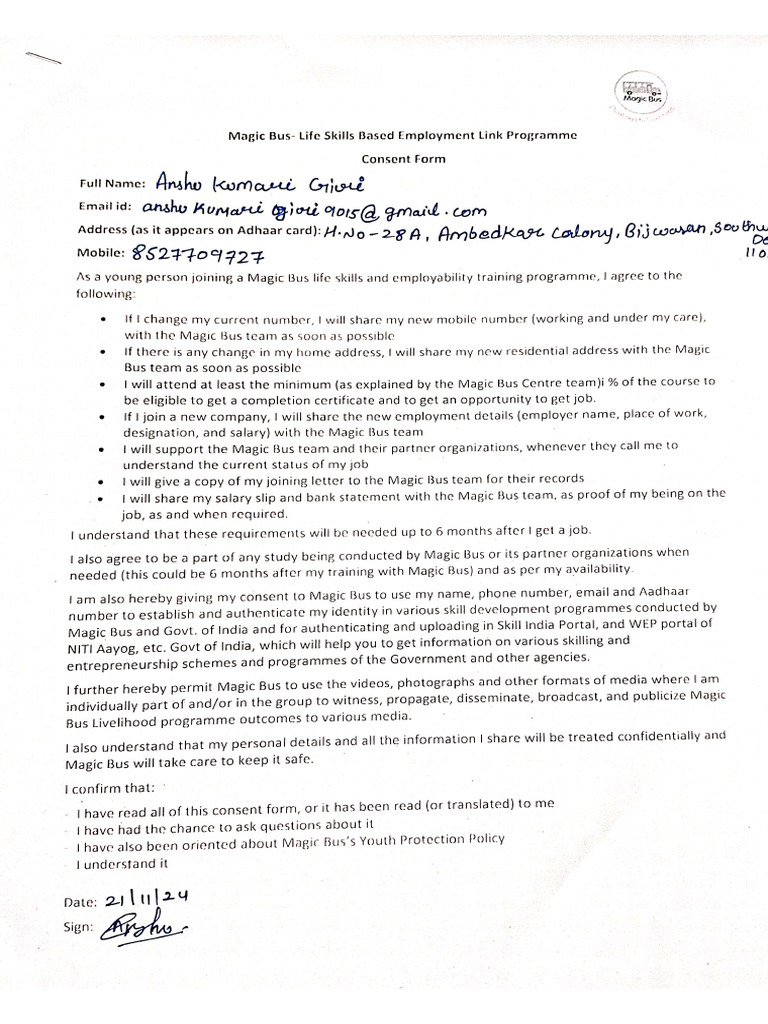 Magic Bus
Magic Bus- Life Skills Based Employment Link Programme
Consent Form
Full Name: Anshu Kumari Giri
Email id: anshukumarigiri9015@gmail.com
Address (as it appears on Adhaar card): H.No-28A, Ambedkar Colony, Bijwasan, Southw
De
110
Mobile: 8527709727
As a young person joining a Magic Bus life skills and employability training programme, I agree to the
following:
• If I change my current number, I will share my new mobile number (working and under my care),
with the Magic Bus team as soon as possible
• If there is any change in my home address, I will share my new residential address with the Magic
Bus team as soon as possible
• I will attend at least the minimum (as explained by the Magic Bus Centre team)i % of the course to
be eligible to get a completion certificate and to get an opportunity to get job.
• If I join a new company, I will share the new employment details (employer name, place of work,
designation, and salary) with the Magic Bus team
• I will support the Magic Bus team and their partner organizations, whenever they call me to
understand the current status of my job
• I will give a copy of my joining letter to the Magic Bus team for their records
• I will share my salary slip and bank statement with the Magic Bus team, as proof of my being on the
job, as and when required.
I understand that these requirements will be needed up to 6 months after I get a job.
I also agree to be a part of any study being conducted by Magic Bus or its partner organizations when
needed (this could be 6 months after my training with Magic Bus) and as per my availability.
I am also hereby giving my consent to Magic Bus to use my name, phone number, email and Aadhaar
number to establish and authenticate my identity in various skill development programmes conducted by
Magic Bus and Govt. of India and for authenticating and uploading in Skill India Portal, and WEP portal of
NITI Aayog, etc. Govt of India, which will help you to get information on various skilling and
entrepreneurship schemes and programmes of the Government and other agencies.
I further hereby permit Magic Bus to use the videos, photographs and other formats of media where I am
individually part of and/or in the group to witness, propagate, disseminate, broadcast, and publicize Magic
Bus Livelihood programme outcomes to various media.
I also understand that my personal details and all the information I share will be treated confidentially and
Magic Bus will take care to keep it safe.
I confirm that:
- I have read all of this consent form, or it has been read (or translated) to me
- I have had the chance to ask questions about it
- I have also been oriented about Magic Bus's Youth Protection Policy
- I understand it
Date: 21/11/24
Sign: Anshu